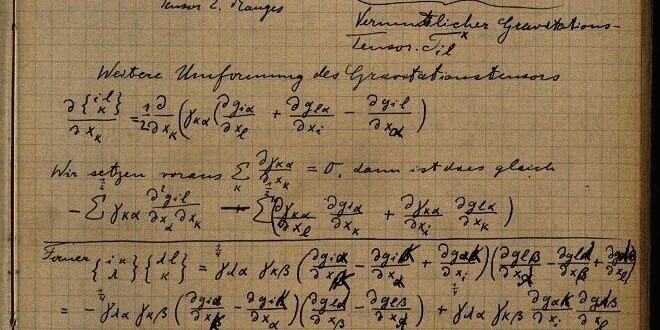 Tensor 2. Ranges
Vermutlicher Gravitations-
Tensor. T_il^x
Weitere Umformung des Gravitationstensors
∂{il κ}/∂x_κ = 1/2 ∂/∂x_κ (γ_κα (∂g_iα/∂x_l + ∂g_lα/∂x_i − ∂g_il/∂x_α))
Wir setzen voraus Σ_κ ∂γ_κα/∂x_κ = 0, dann ist dies gleich
− 1/2 Σ γ_κα ∂²g_il/∂x_α∂x_κ + 1/2 Σ (∂γ_κα/∂x_l ∂g_iα/∂x_κ + ∂γ_κα/∂x_i ∂g_lα/∂x_κ)
Ferner {iκ λ}{λl κ} = 1/4 γ_λα γ_κβ (∂g_iα/∂x_κ − ∂g_iκ/∂x_α + ∂g_ακ/∂x_i)(∂g_lβ/∂x_λ − ∂g_lλ/∂x_β +
= − 1/4 γ_λα γ_κβ (∂g_iα/∂x_κ − ∂g_iκ/∂x_α)(∂g_lλ/∂x_β − ∂g_lβ/∂x_λ) + 1/4 γ_λα γ_κβ ∂g_ακ/∂x_i